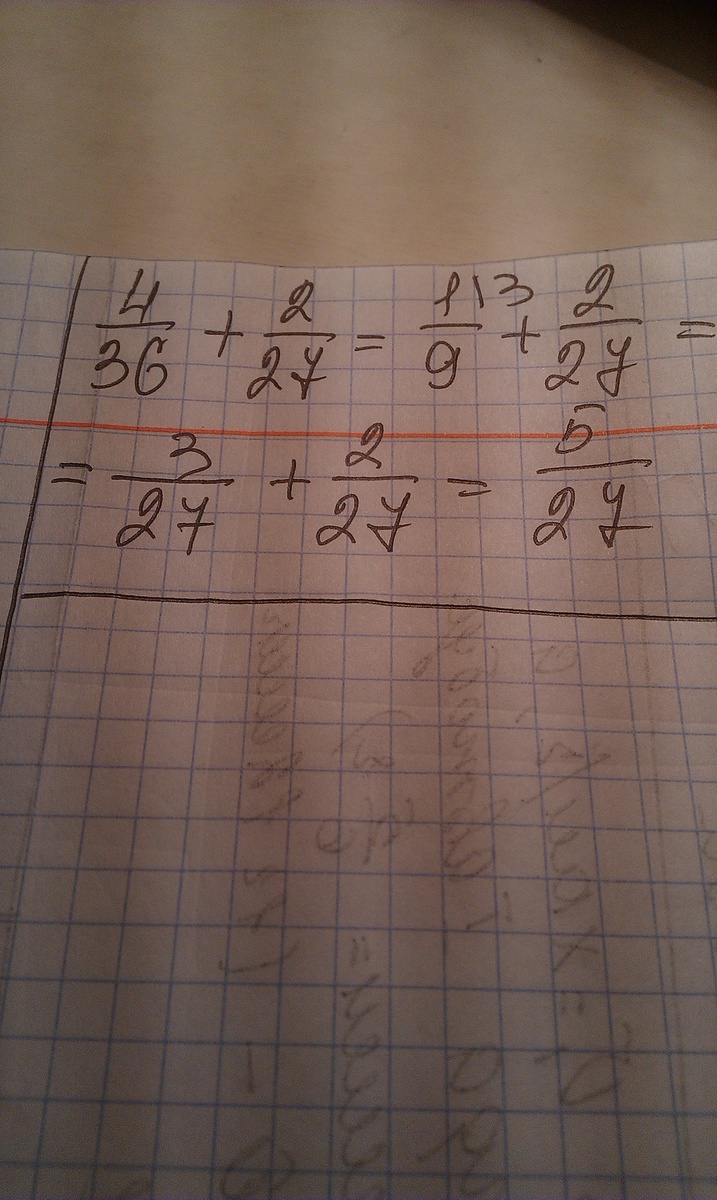 4/36 + 2/27 = 1\3/9 + 2/27 =
= 3/27 + 2/27 = 5/27